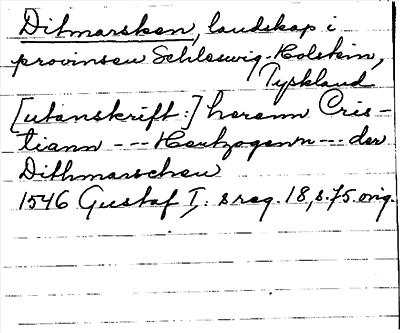 Ditmarsken, landskap i
provinsen Schleswig-Holstein,
Tyskland
[utanskrift:] herenn Cris-
tiann --- Hertzogenn --- der
Dithmarschen
1546 Gustaf I: s reg. 18, s. 75. orig.